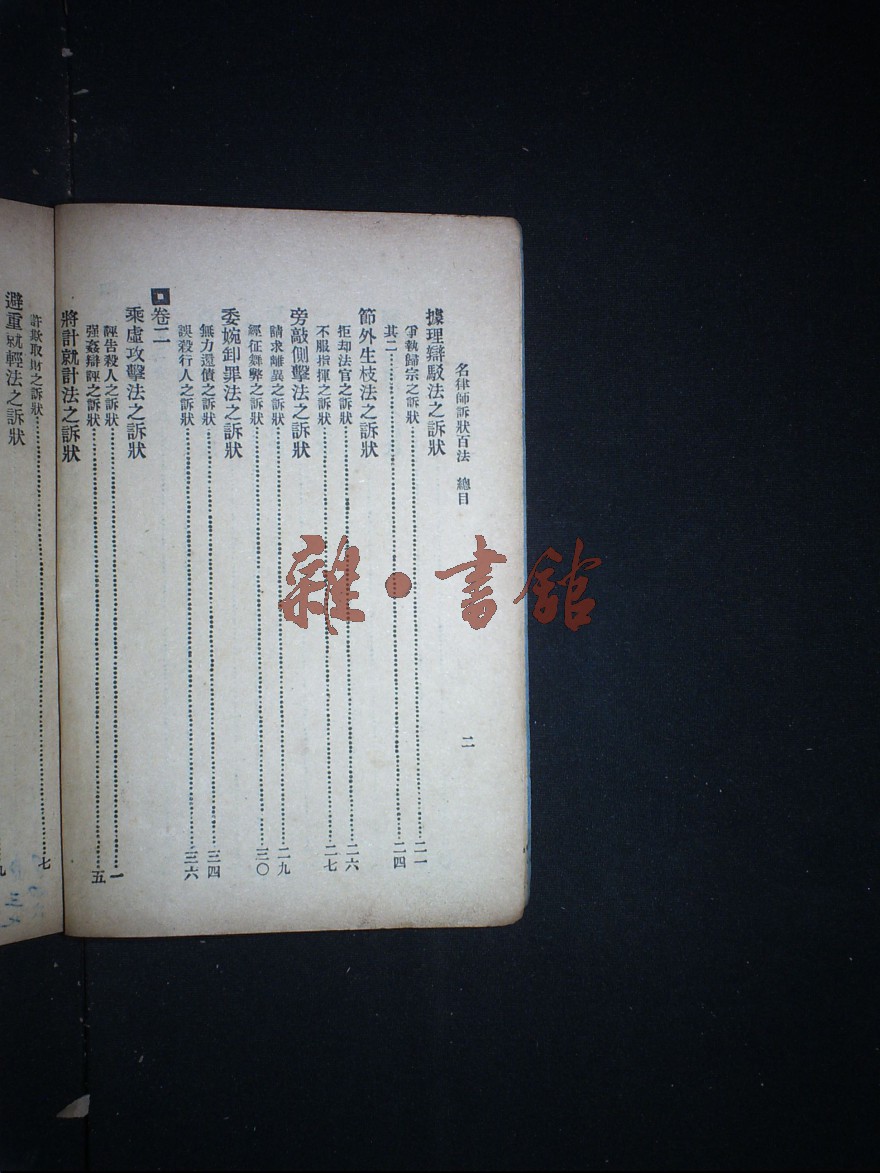 名律師訴狀百法　總目
二
據理辯駁法之訴狀
爭執歸宗之訴狀……二一
其二……二四
節外生枝法之訴狀
拒却法官之訴狀……二六
不服指揮之訴狀……二七
旁敲側擊法之訴狀
請求離異之訴狀……二九
經征舞弊之訴狀……三〇
委婉卸罪法之訴狀
無力還債之訴狀……三四
誤殺行人之訴狀……三六
卷二
乘虛攻擊法之訴狀
誣告殺人之訴狀……一
强姦辯誣之訴狀……五
將計就計法之訴狀
詐欺取財之訴狀……七
避重就輕法之訴狀
九
雜·書館